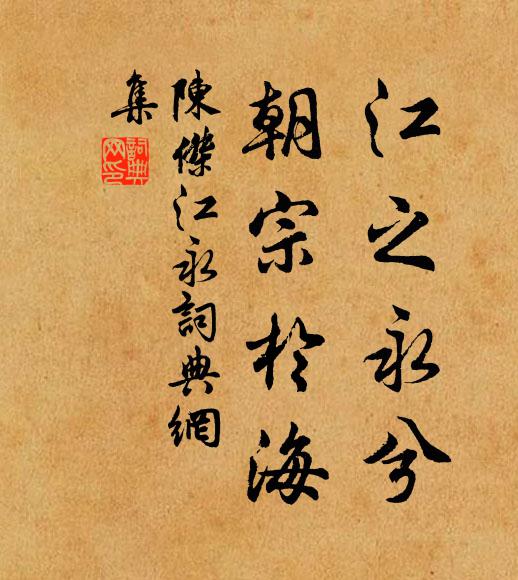 江之永兮
朝宗於海
陳傑江永詞典網
集
詞典
网印